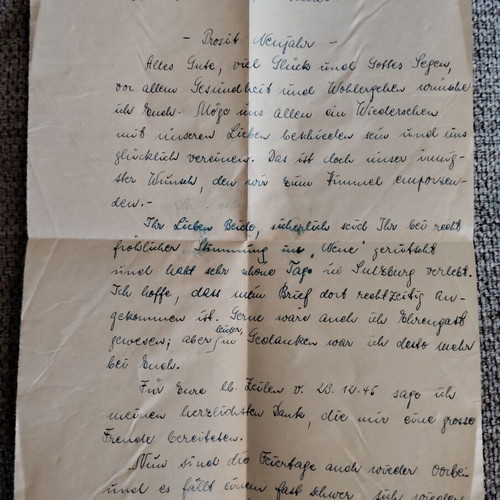 - Prosit Neujahr -
Alles Gute, viel Glück und Gottes Segen,
vor allem Gesundheit und Wohlergehen wünsche
ich Euch. Möge uns allen ein Wiedersehen
mit unseren Lieben beschieden sein und uns
glücklich vereinen. Das ist doch unser innig-
ster Wunsch, den wir zum Himmel emporsen-
den. -
Ihr Lieben Beide, sicherlich seid Ihr bei recht
fröhlicher Stimmung ins "Neue" gerutscht
und habt sehr schöne Tage in Sulzburg verlebt.
Ich hoffe, dass mein Brief dort rechtzeitig an-
gekommen ist. Gerne wäre auch ich Ehrengast
gewesen; aber leider, in Gedanken war ich desto mehr
bei Euch.
Für Eure lb. Zeilen v. 28.12.45 sage ich
meinen herzlichsten Dank, die mir eine grosse
Freude bereiteten.
Nun sind die Feiertage auch wieder vorbei
und es fällt einem fast schwer, sich wieder